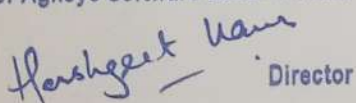 Harshgeet Kaur
Director